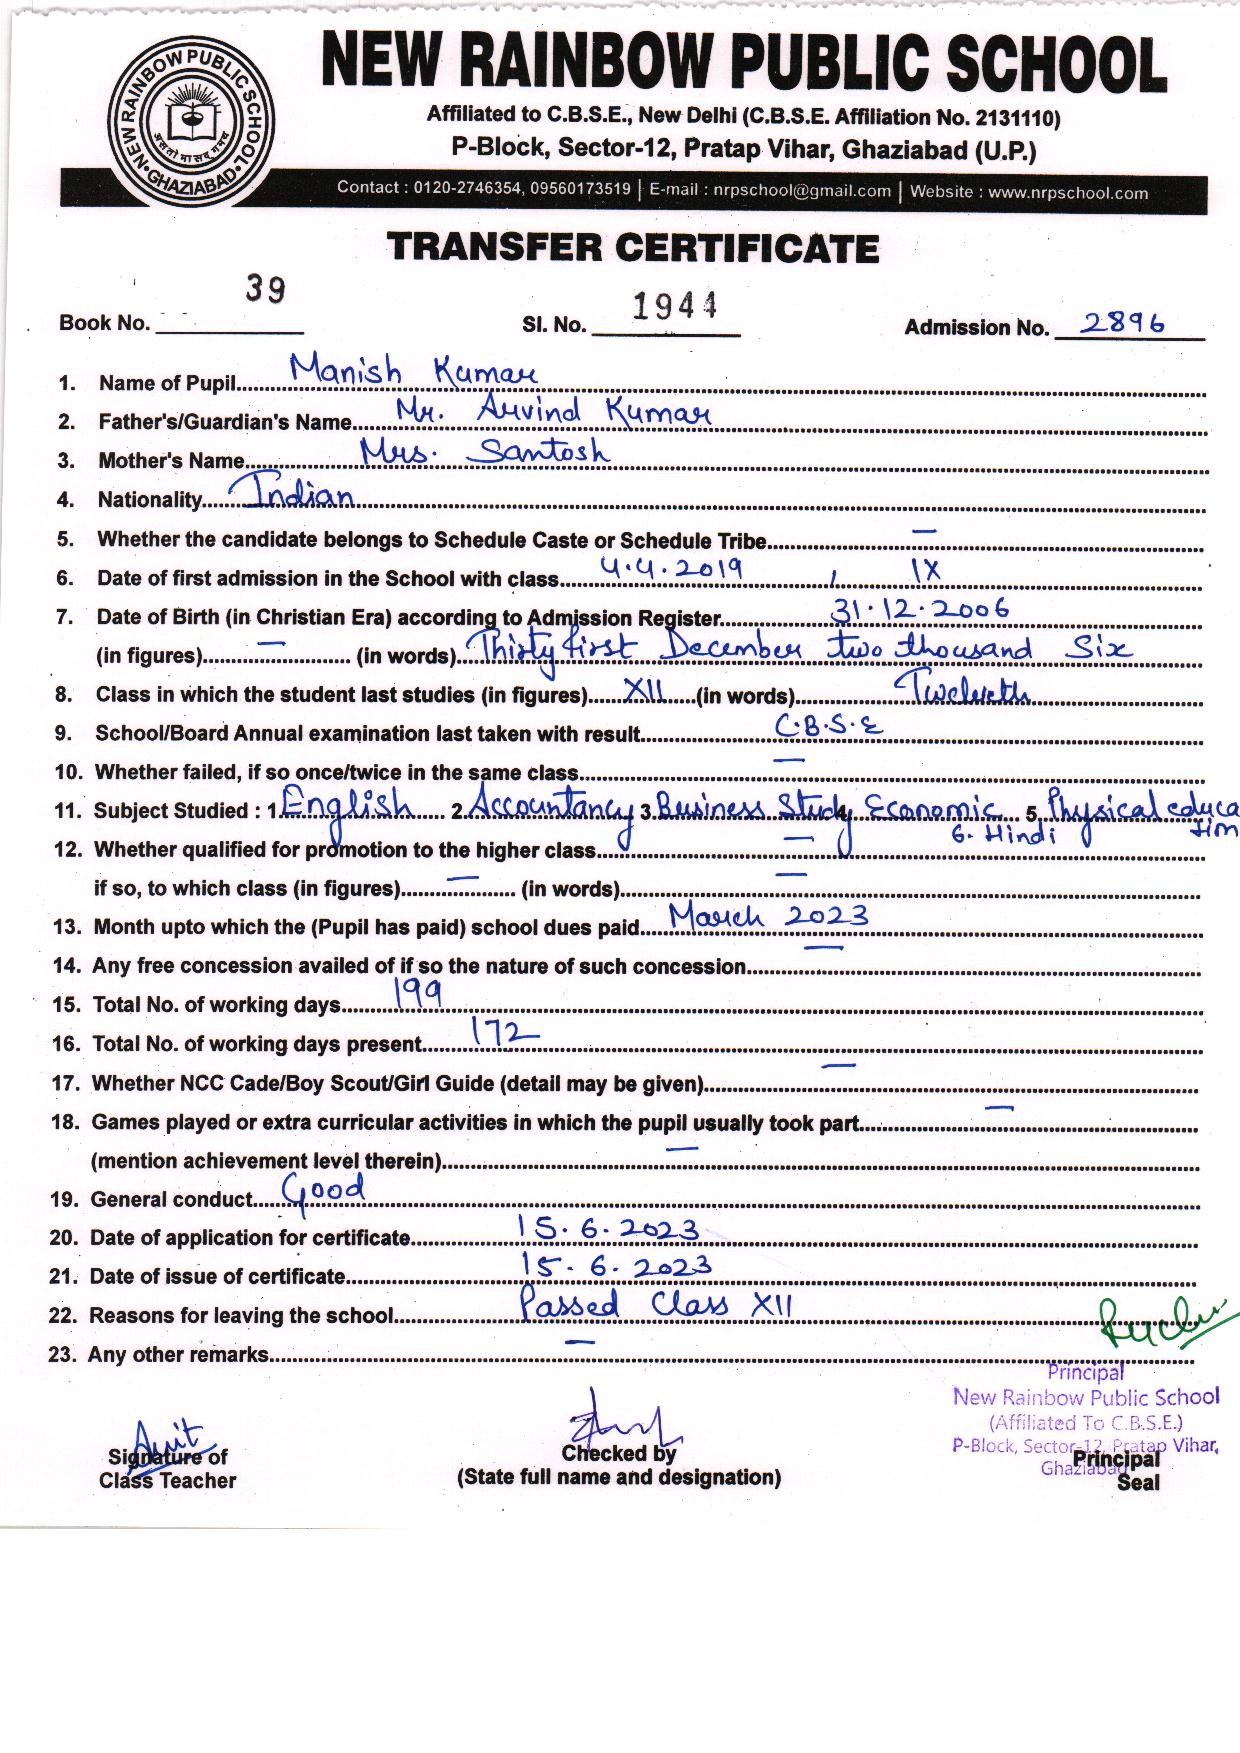 NEW RAINBOW PUBLIC SCHOOL GHAZIABAD
असतो मा सद् गमय
NEW RAINBOW PUBLIC SCHOOL
Affiliated to C.B.S.E., New Delhi (C.B.S.E. Affiliation No. 2131110)
P-Block, Sector-12, Pratap Vihar, Ghaziabad (U.P.)
Contact : 0120-2746354, 09560173519 | E-mail : nrpschool@gmail.com | Website : www.nrpschool.com
TRANSFER CERTIFICATE
Book No. 39 Sl. No. 1944 Admission No. 2896
1. Name of Pupil Manish Kumar
2. Father's/Guardian's Name Mr. Arvind Kumar
3. Mother's Name Mrs. Santosh
4. Nationality Indian
5. Whether the candidate belongs to Schedule Caste or Schedule Tribe —
6. Date of first admission in the School with class 4.4.2019 , IX
7. Date of Birth (in Christian Era) according to Admission Register 31.12.2006
(in figures) — (in words) Thirty first December two thousand Six
8. Class in which the student last studies (in figures) XII (in words) Twelveth
9. School/Board Annual examination last taken with result C.B.S.E
10. Whether failed, if so once/twice in the same class —
11. Subject Studied : 1. English 2. Accountancy 3. Business Study 4. Economic 5. Physical education
6. Hindi
12. Whether qualified for promotion to the higher class —
if so, to which class (in figures) — (in words) —
13. Month upto which the (Pupil has paid) school dues paid March 2023
14. Any free concession availed of if so the nature of such concession —
15. Total No. of working days 199
16. Total No. of working days present 172
17. Whether NCC Cade/Boy Scout/Girl Guide (detail may be given) —
18. Games played or extra curricular activities in which the pupil usually took part —
(mention achievement level therein) —
19. General conduct Good
20. Date of application for certificate 15.6.2023
21. Date of issue of certificate 15.6.2023
22. Reasons for leaving the school Passed Class XII
23. Any other remarks —
Principal
New Rainbow Public School
(Affiliated To C.B.S.E.)
P-Block, Sector-12, Pratap Vihar,
Ghaziabad
Signature of
Class Teacher
Checked by
(State full name and designation)
Principal
Seal